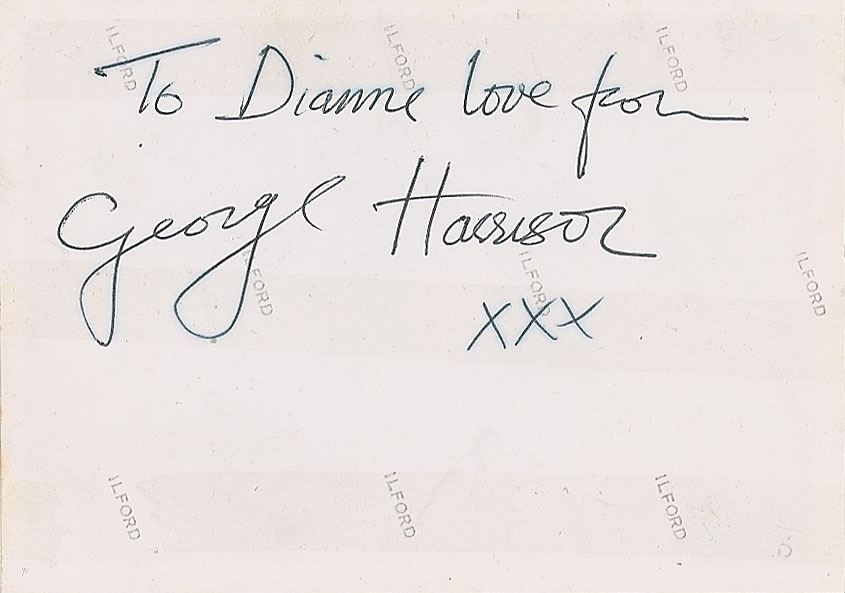 ILFORD ILFORD ILFORD
To Dianne love from
George Harrison
ILFORD ILFORD ILFORD
xxx
ILFORD ILFORD ILFORD